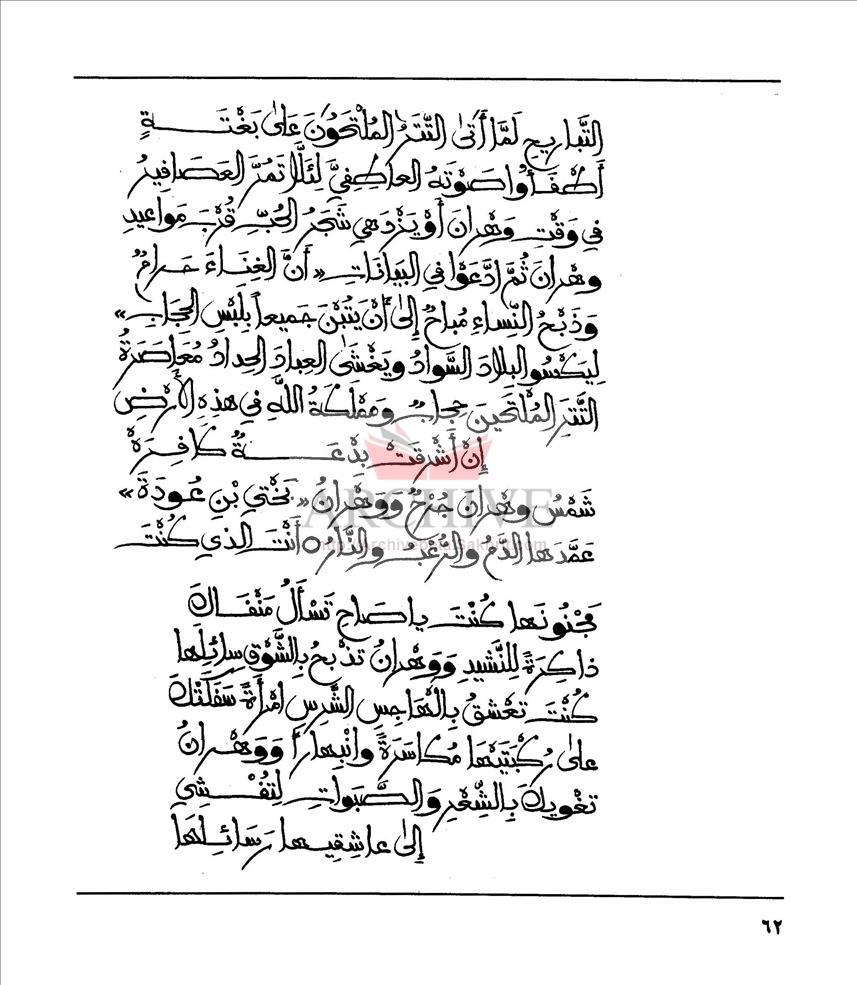 التَّبَارِيحِ لَمَّا أَتَى التَّتَرُ المُلْتَحُونَ عَلَى بَغْتَـــةٍ
أَطْفَأُوا صَوْتَهُ العاطِفِيَّ لِئَلَّا تَمُرَّ العَصَافِيرُ
فِي وَقْتِ وَهْرانَ أَوْ يَزْدَهِي شَجَرُ الحُبِّ قُرْبَ مَوَاعِيدِ
وهْرانَ ثُمَّ ادَّعَوْا فِي البَيَانَاتِ « أَنَّ الغِنَاءَ حَرامٌ
وَذَبْحُ النِّساءِ مُباحٌ إِلَى أَنْ يَتُبْنَ جَمِيعاً بِلُبْسِ الحِجَابِ »
لِيَكْسُو البِلادَ السَّوادُ ويَغْشَى العِبادَ الحِدادُ مُعَاصَرَةُ
التَّتَرِ المُلْتَحِينَ حِجَابٌ وَمَمْلَكَةُ اللَّهِ فِي هَذِهِ الأَرْضِ
إِنْ أَشْرَقَتْ بِدْعَـــةٌ كَافِرَةْ
شَمْسُ وهْرانَ جُرْحٌ وَوَهْرانُ « بَخْتِي بْنِ عُودَةَ »
عَمَّدَها الدَّمُ والرُّعْبُ والنَّارُ ○ أَنْتَ الذي كُنْتَ
مَجْنُونَها كُنْتَ يا صَاحِ تَسْأَلُ مَنْفَاكَ
ذاكِرَةً لِلنَّشِيدِ وَوَهْرانُ تذْبَحُ بِالشَّوْقِ سائِلَها
كُنْتَ تَعْشَقُ بِالْهَاجِسِ الشَّرِسِ امْرَأَةً سَفَكَتْكَ
عَلَى رُكْبَتَيْهَا مُكَاسَرَةً وانْبِهاراً وَوَهْرانُ
تغْوِيكَ بِالشِّعْرِ وَالصَّبَواتِ لِتُفْشِي
إِلَى عاشِقِيها رَسَائِلَهَا
ARCHIVE
٦٢